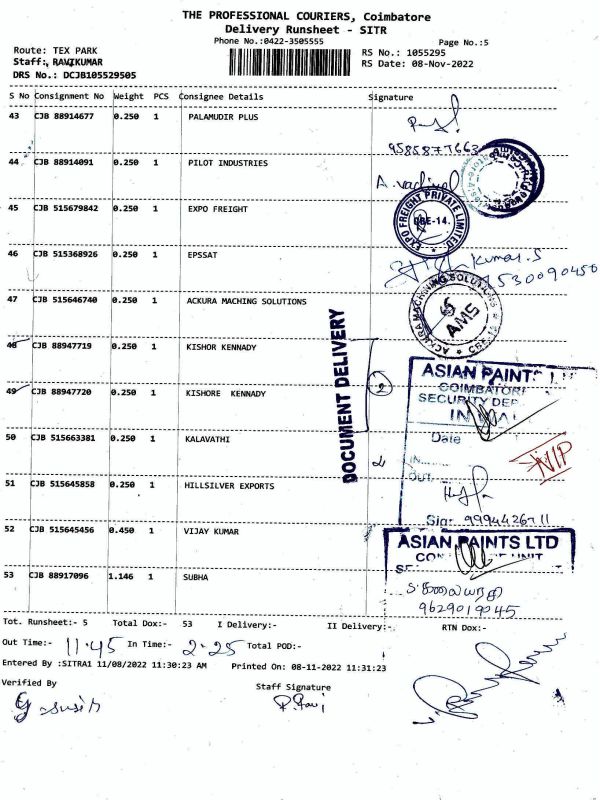 THE PROFESSIONAL COURIERS, Coimbatore
Delivery Runsheet - SITR
Phone No.:0422-3505555
Page No.:5
Route: TEX PARK
RS No.: 1055295
Staff: RAVIKUMAR
RS Date: 08-Nov-2022
DRS No.: DCJB105529505
S No Consignment No Weight PCS Consignee Details Signature
43 CJB 88914677 0.250 1 PALAMUDIR PLUS
9585877663
44 CJB 88914091 0.250 1 PILOT INDUSTRIES
A. vadivel
45 CJB 515679842 0.250 1 EXPO FREIGHT
EXPO FREIGHT PRIVATE LIMITED
CBE-14.
46 CJB 515368926 0.250 1 EPSSAT
Kumar.S
9530090450
47 CJB 515646740 0.250 1 ACKURA MACHING SOLUTIONS
ACKURA MACHNING SOLUTIONS
AMS
DOCUMENT DELIVERY
48 CJB 88947719 0.250 1 KISHOR KENNADY
49 CJB 88947720 0.250 1 KISHORE KENNADY
2
ASIAN PAINTS
COIMBATORE
SECURITY DEP
Date
NIP
50 CJB 515663381 0.250 1 KALAVATHI
IN
OUT
51 CJB 515645858 0.250 1 HILLSILVER EXPORTS
Sig:
9994426711
52 CJB 515645456 0.450 1 VIJAY KUMAR
ASIAN PAINTS LTD
UNIT
53 CJB 88917096 1.146 1 SUBHA
9629019045
Tot. Runsheet:- 5 Total Dox:- 53 I Delivery:- II Delivery:- RTN Dox:-
Out Time:- 11.45 In Time:- 2.25 Total POD:-
Entered By :SITRA1 11/08/2022 11:30:23 AM Printed On: 08-11-2022 11:31:23
Verified By
Staff Signature